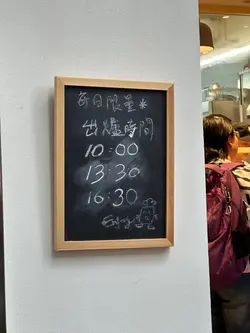 每日限量*
出爐時間
10:00
13:30
16:30
Enjoy